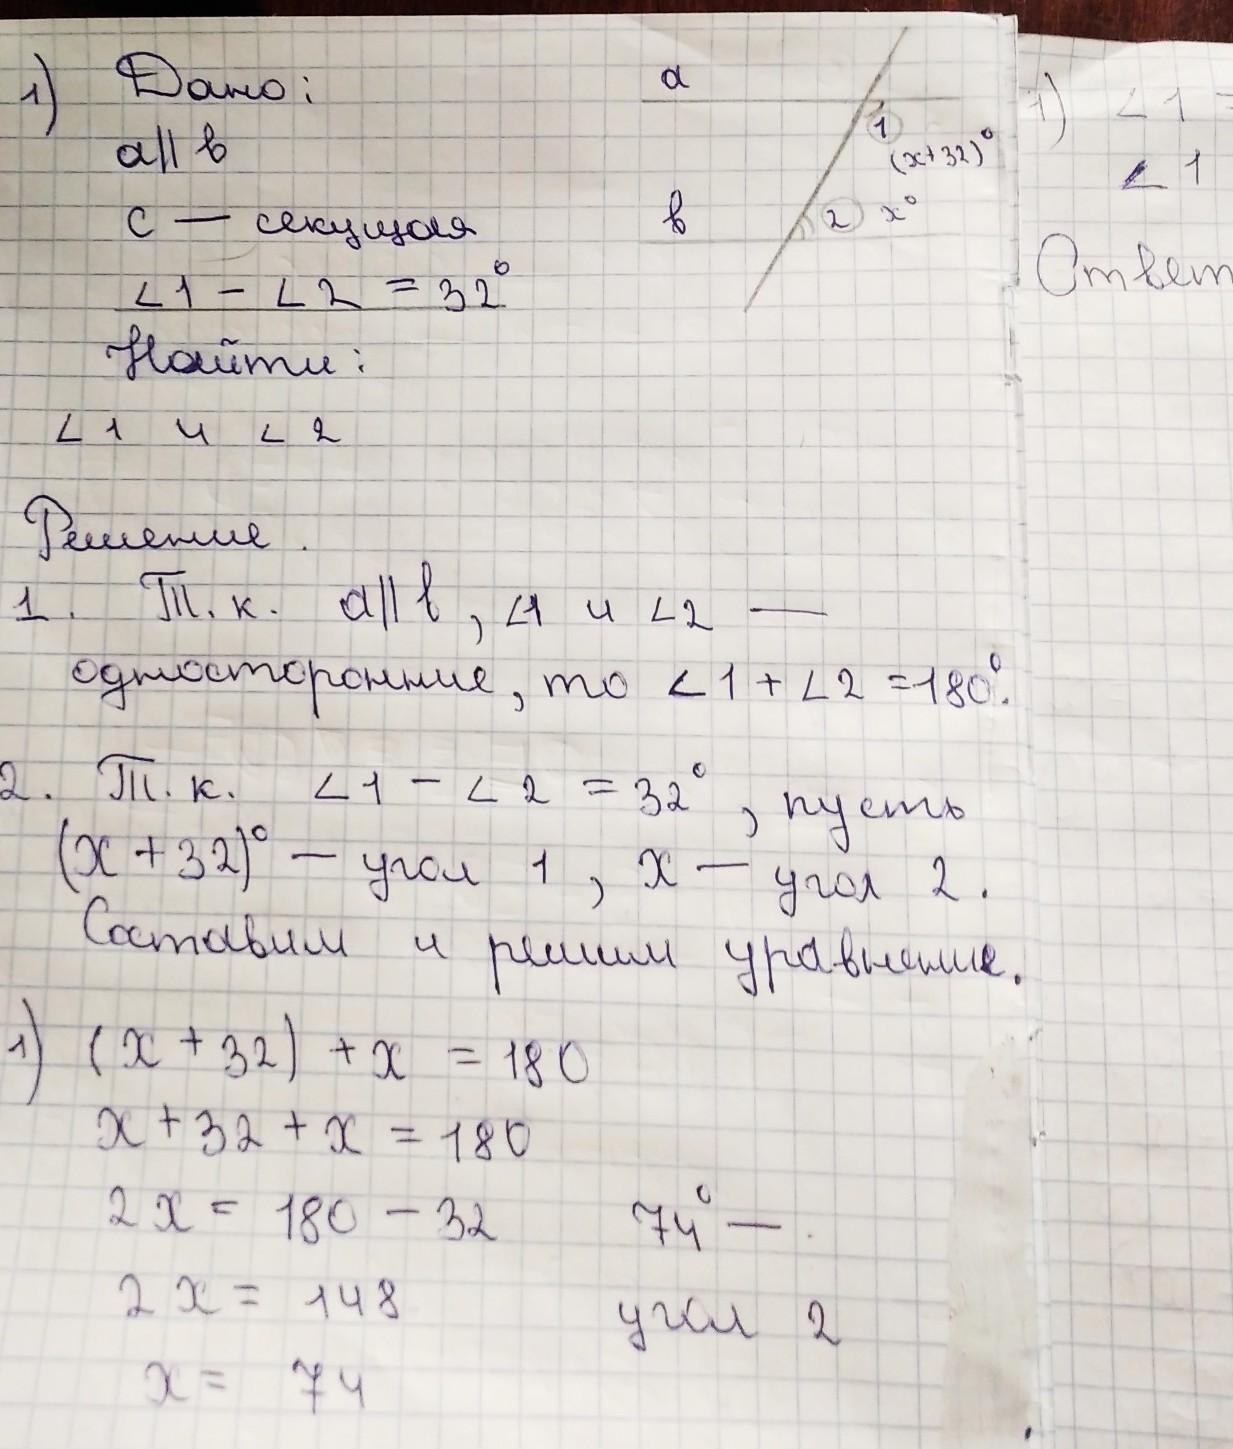 1) Дано:
a || b
c — секущая
∠1 - ∠2 = 32°
Найти:
∠1 и ∠2
a
1
(x+32)°
b
2 x°
Решение.
1. Т.к. a || b, ∠1 и ∠2 —
односторонние, то ∠1 + ∠2 = 180°.
2. Т.к. ∠1 - ∠2 = 32°, пусть
(x + 32)° — угол 1, x — угол 2.
Составим и решим уравнение.
1) (x + 32) + x = 180
x + 32 + x = 180
2x = 180 - 32
2x = 148
x = 74
74° —
угол 2
1) ∠1 =
∠1
Ответ